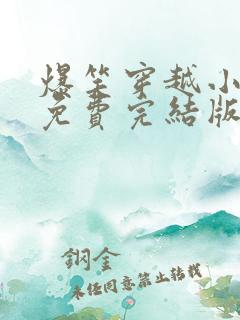 爆笑穿越小
免費完結版
鋼金
未經同意禁止轉載